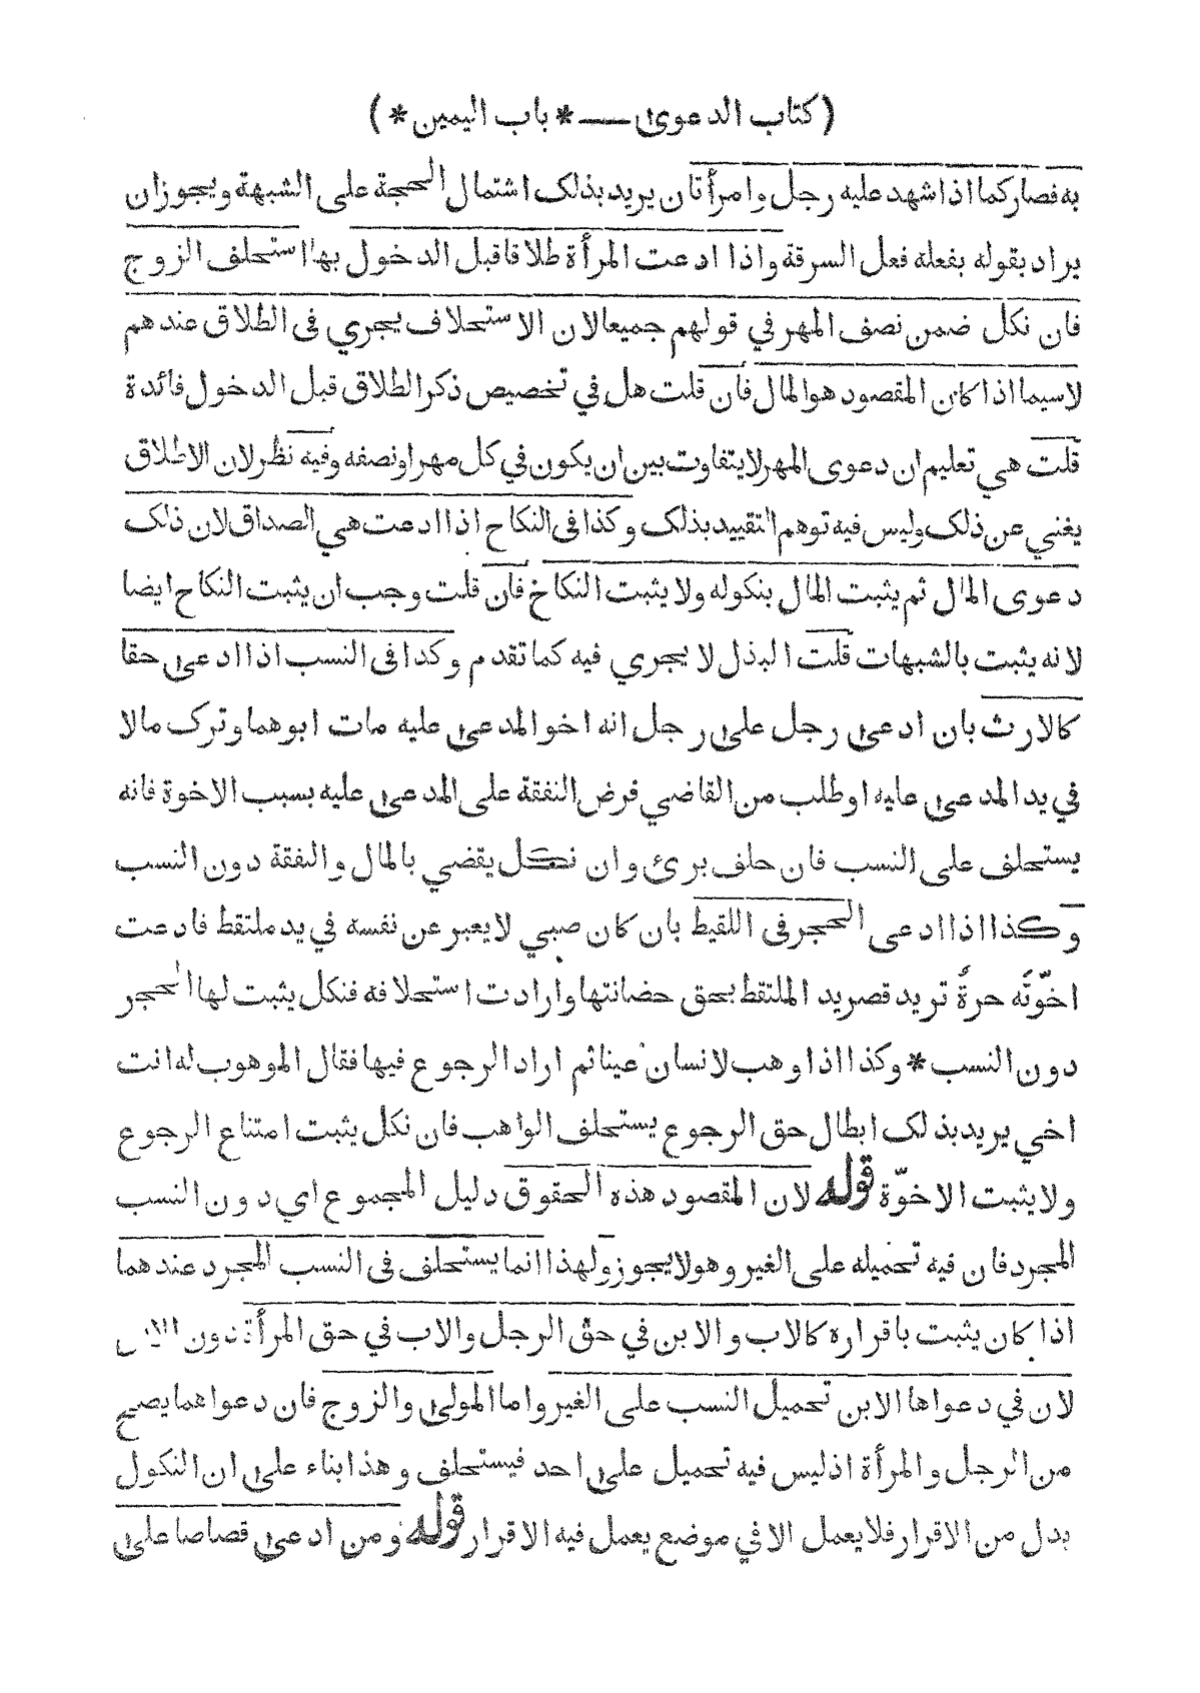 (كتاب الدعوى — * باب اليمين *)
به فصار كما اذا شهد عليه رجل وامرأتان يريد بذلك اشتمال الحجة على الشبهة ويجوز ان
يراد بقوله بفعله فعل السرقة واذا ادعت المرأة طلاقا قبل الدخول بها استحلف الزوج
فان نكل ضمن نصف المهر في قولهم جميعا لان الاستحلاف يجري في الطلاق عندهم
لاسيما اذا كان المقصود هو المال فان قلت هل في تخصيص ذكر الطلاق قبل الدخول فائدة
قلت هي تعليم ان دعوى المهر لا يتفاوت بين ان يكون في كل مهر او نصفه وفيه نظر لان الاطلاق
يغني عن ذلك وليس فيه توهم التقييد بذلك وكذا في النكاح اذا ادعت هي الصداق لان ذلك
دعوى المال ثم يثبت المال بنكوله ولا يثبت النكاح فان قلت وجب ان يثبت النكاح ايضا
لانه يثبت بالشبهات قلت البذل لا يجري فيه كما تقدم وكذا في النسب اذا ادعى حقا
كالارث بان ادعى رجل على رجل انه اخو المدعى عليه مات ابوهما وترك مالا
في يد المدعى عليه او طلب من القاضي فرض النفقة على المدعى عليه بسبب الاخوة فانه
يستحلف على النسب فان حلف برئ وان نكل يقضي بالمال والنفقة دون النسب
وكذا اذا ادعى الحجر في اللقيط بان كان صبي لا يعبر عن نفسه في يد ملتقط فادعت
اخوّته حرةٌ تريد قصر يد الملتقط بحق حضانتها وارادت استحلافه فنكل يثبت لها الحجر
دون النسب * وكذا اذا وهب لانسان عينا ثم اراد الرجوع فيها فقال الموهوب له انت
اخي يريد بذلك ابطال حق الرجوع يستحلف الواهب فان نكل يثبت امتناع الرجوع
ولا يثبت الاخوّة قوله لان المقصود هذه الحقوق دليل المجموع اي دون النسب
المجرد فان فيه تحميله على الغير وهو لا يجوز ولهذا انما يستحلف في النسب المجرد عندهما
اذا كان يثبت باقراره كالاب والابن في حق الرجل والاب في حق المرأة دون الابن
لان في دعواها الابن تحميل النسب على الغير واما المولى والزوج فان دعواهما يصح
من الرجل والمرأة اذ ليس فيه تحميل على احد فيستحلف وهذا بناء على ان النكول
بدل من الاقرار فلا يعمل الا في موضع يعمل فيه الاقرار قوله ومن ادعى قصاصا على